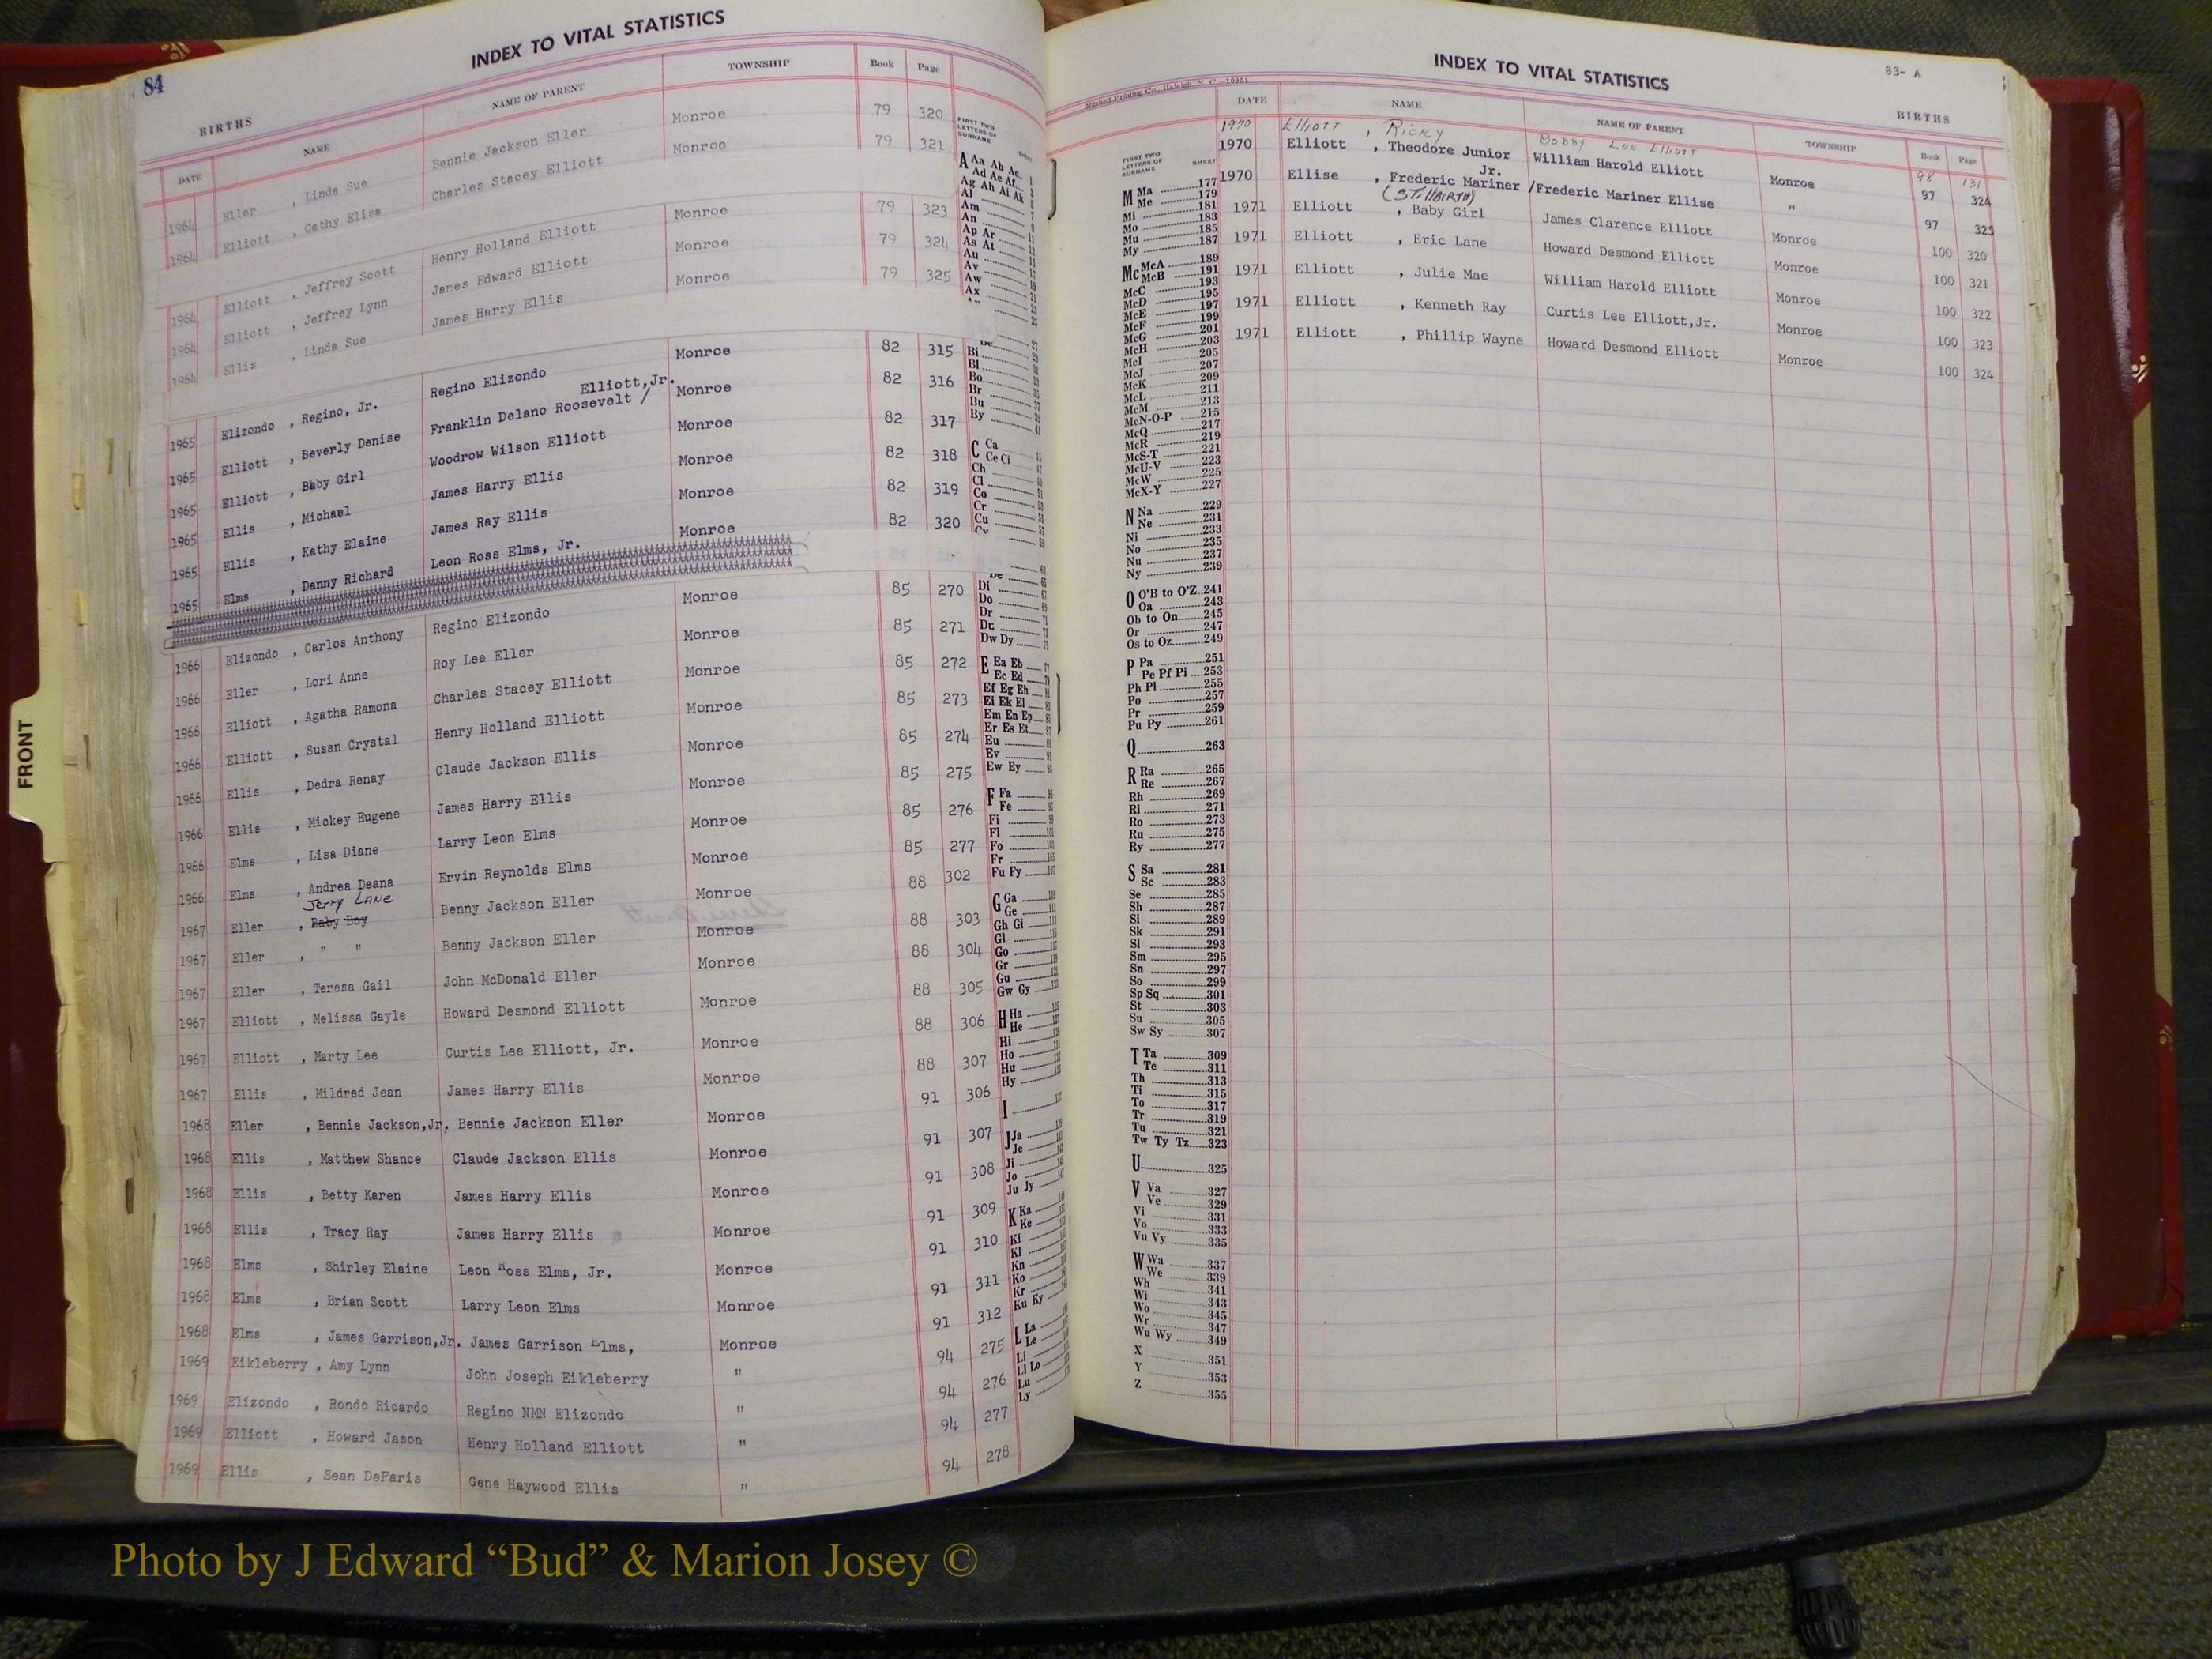 84
INDEX TO VITAL STATISTICS
BIRTHS
DATE NAME NAME OF PARENT TOWNSHIP Book Page
1964 Eller , Linda Sue Bennie Jackson Eller Monroe 79 320
1964 Elliott , Cathy Elisa Charles Stacey Elliott Monroe 79 321
1964 Elliott , Jeffrey Scott Henry Holland Elliott Monroe 79 323
1964 Elliott , Jeffrey Lynn James Edward Elliott Monroe 79 324
1964 Ellis , Linda Sue James Harry Ellis Monroe 79 325
1965 Elizondo , Regino, Jr. Regino Elizondo Monroe 82 315
Elliott,Jr.
1965 Elliott , Beverly Denise Franklin Delano Roosevelt / Monroe 82 316
1965 Elliott , Baby Girl Woodrow Wilson Elliott Monroe 82 317
1965 Ellis , Michael James Harry Ellis Monroe 82 318
1965 Ellis , Kathy Elaine James Ray Ellis Monroe 82 319
1965 Elms , Danny Richard Leon Ross Elms, Jr. Monroe 82 320
1966 Elizondo , Carlos Anthony Regino Elizondo Monroe 85 270
1966 Eller , Lori Anne Roy Lee Eller Monroe 85 271
1966 Elliott , Agatha Ramona Charles Stacey Elliott Monroe 85 272
1966 Elliott , Susan Crystal Henry Holland Elliott Monroe 85 273
1966 Ellis , Dedra Renay Claude Jackson Ellis Monroe 85 274
1966 Ellis , Mickey Eugene James Harry Ellis Monroe 85 275
1966 Elms , Lisa Diane Larry Leon Elms Monroe 85 276
1966 Elms , Andrea Deana Ervin Reynolds Elms Monroe 85 277
Jerry Lane
1967 Eller , Baby Boy Benny Jackson Eller Monroe 88 302
1967 Eller , " " Benny Jackson Eller Monroe 88 303
1967 Eller , Teresa Gail John McDonald Eller Monroe 88 304
1967 Elliott , Melissa Gayle Howard Desmond Elliott Monroe 88 305
1967 Elliott , Marty Lee Curtis Lee Elliott, Jr. Monroe 88 306
1967 Ellis , Mildred Jean James Harry Ellis Monroe 88 307
1968 Eller , Bennie Jackson,Jr. Bennie Jackson Eller Monroe 91 306
1968 Ellis , Matthew Shance Claude Jackson Ellis Monroe 91 307
1968 Ellis , Betty Karen James Harry Ellis Monroe 91 308
1968 Ellis , Tracy Ray James Harry Ellis Monroe 91 309
1968 Elms , Shirley Elaine Leon Ross Elms, Jr. Monroe 91 310
1968 Elms , Brian Scott Larry Leon Elms Monroe 91 311
1968 Elms , James Garrison,Jr. James Garrison Elms, Monroe 91 312
1969 Eikleberry , Amy Lynn John Joseph Eikleberry " 94 275
1969 Elizondo , Rondo Ricardo Regino NMN Elizondo " 94 276
1969 Elliott , Howard Jason Henry Holland Elliott " 94 277
1969 Ellis , Sean DeFaris Gene Haywood Ellis " 94 278
FIRST TWO
LETTERS OF
SURNAME SHEET
A Aa Ab Ac
Ad Ae Af
Ag Ah Ai Ak
Al
Am
An
Ap Ar
As At
Au
Av
Aw
Ax
Bi
Bl
Bo
Br
Bu
By
C Ca
Ce Ci
Ch
Cl
Co
Cr
Cu
Di
Do
Dr
Du
Dw Dy
E Ea Eb
Ec Ed
Ef Eg Eh
Ei Ek El
Em En Ep
Er Es Et
Eu
Ev
Ew Ey
F Fa
Fe
Fi
Fl
Fo
Fr
Fu Fy
G Ga
Ge
Gh Gi
Gl
Go
Gr
Gu
Gw Gy
H Ha
He
Hi
Ho
Hu
Hy
I
J Ja
Je
Ji
Jo
Ju Jy
K Ka
Ke
Ki
Kl
Kn
Ko
Kr
Ku Ky
L La
Le
Li
Ll Lo
Lu
Ly
FRONT
INDEX TO VITAL STATISTICS
83- A
Mitchell Printing Co., Raleigh, N. C.-10951
BIRTHS
DATE NAME NAME OF PARENT TOWNSHIP Book Page
1970 Elliott , Ricky Bobby Lee Elliott 98 131
1970 Elliott , Theodore Junior William Harold Elliott Monroe 97 324
Jr.
1970 Ellise , Frederic Mariner / Frederic Mariner Ellise " 97 325
(STILLBIRTH)
1971 Elliott , Baby Girl James Clarence Elliott Monroe 100 320
1971 Elliott , Eric Lane Howard Desmond Elliott Monroe 100 321
1971 Elliott , Julie Mae William Harold Elliott Monroe 100 322
1971 Elliott , Kenneth Ray Curtis Lee Elliott,Jr. Monroe 100 323
1971 Elliott , Phillip Wayne Howard Desmond Elliott Monroe 100 324
FIRST TWO
LETTERS OF
SURNAME SHEET
M Ma 177
Me 179
Mi 181
Mo 183
Mu 185
My 187
Mc McA 189
McB 191
McC 193
McD 195
McE 197
McF 199
McG 201
McH 203
McI 205
McJ 207
McK 209
McL 211
McM 213
McN-O-P 215
McQ 217
McR 219
McS-T 221
McU-V 223
McW 225
McX-Y 227
N Na 229
Ne 231
Ni 233
No 235
Nu 237
Ny 239
O O'B to O'Z 241
Oa 243
Ob to On 245
Or 247
Os to Oz 249
P Pa 251
Pe Pf Pi 253
Ph Pl 255
Po 257
Pr 259
Pu Py 261
Q 263
R Ra 265
Re 267
Rh 269
Ri 271
Ro 273
Ru 275
Ry 277
S Sa 281
Sc 283
Se 285
Sh 287
Si 289
Sk 291
Sl 293
Sm 295
Sn 297
So 299
Sp Sq 301
St 303
Su 305
Sw Sy 307
T Ta 309
Te 311
Th 313
Ti 315
To 317
Tr 319
Tu 321
Tw Ty Tz 323
U 325
V Va 327
Ve 329
Vi 331
Vo 333
Vu Vy 335
W Wa 337
We 339
Wh 341
Wi 343
Wo 345
Wr 347
Wu Wy 349
X 351
Y 353
Z 355
Photo by J Edward “Bud” & Marion Josey ©